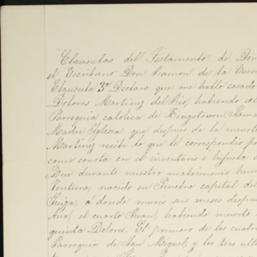 Clausulas del Testamento de Don
el Escribano Don Ramon de la Cueva
Clausula 3ª Declaro que me hallo casado
Dolores Martinez del Rio, habiendo
Parroquia catolica de Kingstown Jama
Madre Iglesia que despues de la muerte
Martinez recibi lo que le correspondio
como consta en el inventario é hijuela
Que durante nuestro matrimonio
Ventura, nacido en Ginebra capital del
Suiza, a donde murio seis meses despues
Ana, el cuarto Juan, habiendo muerto
quinta Dolores. El primero de los cuatro
Parroquia de San Miguel y los tres